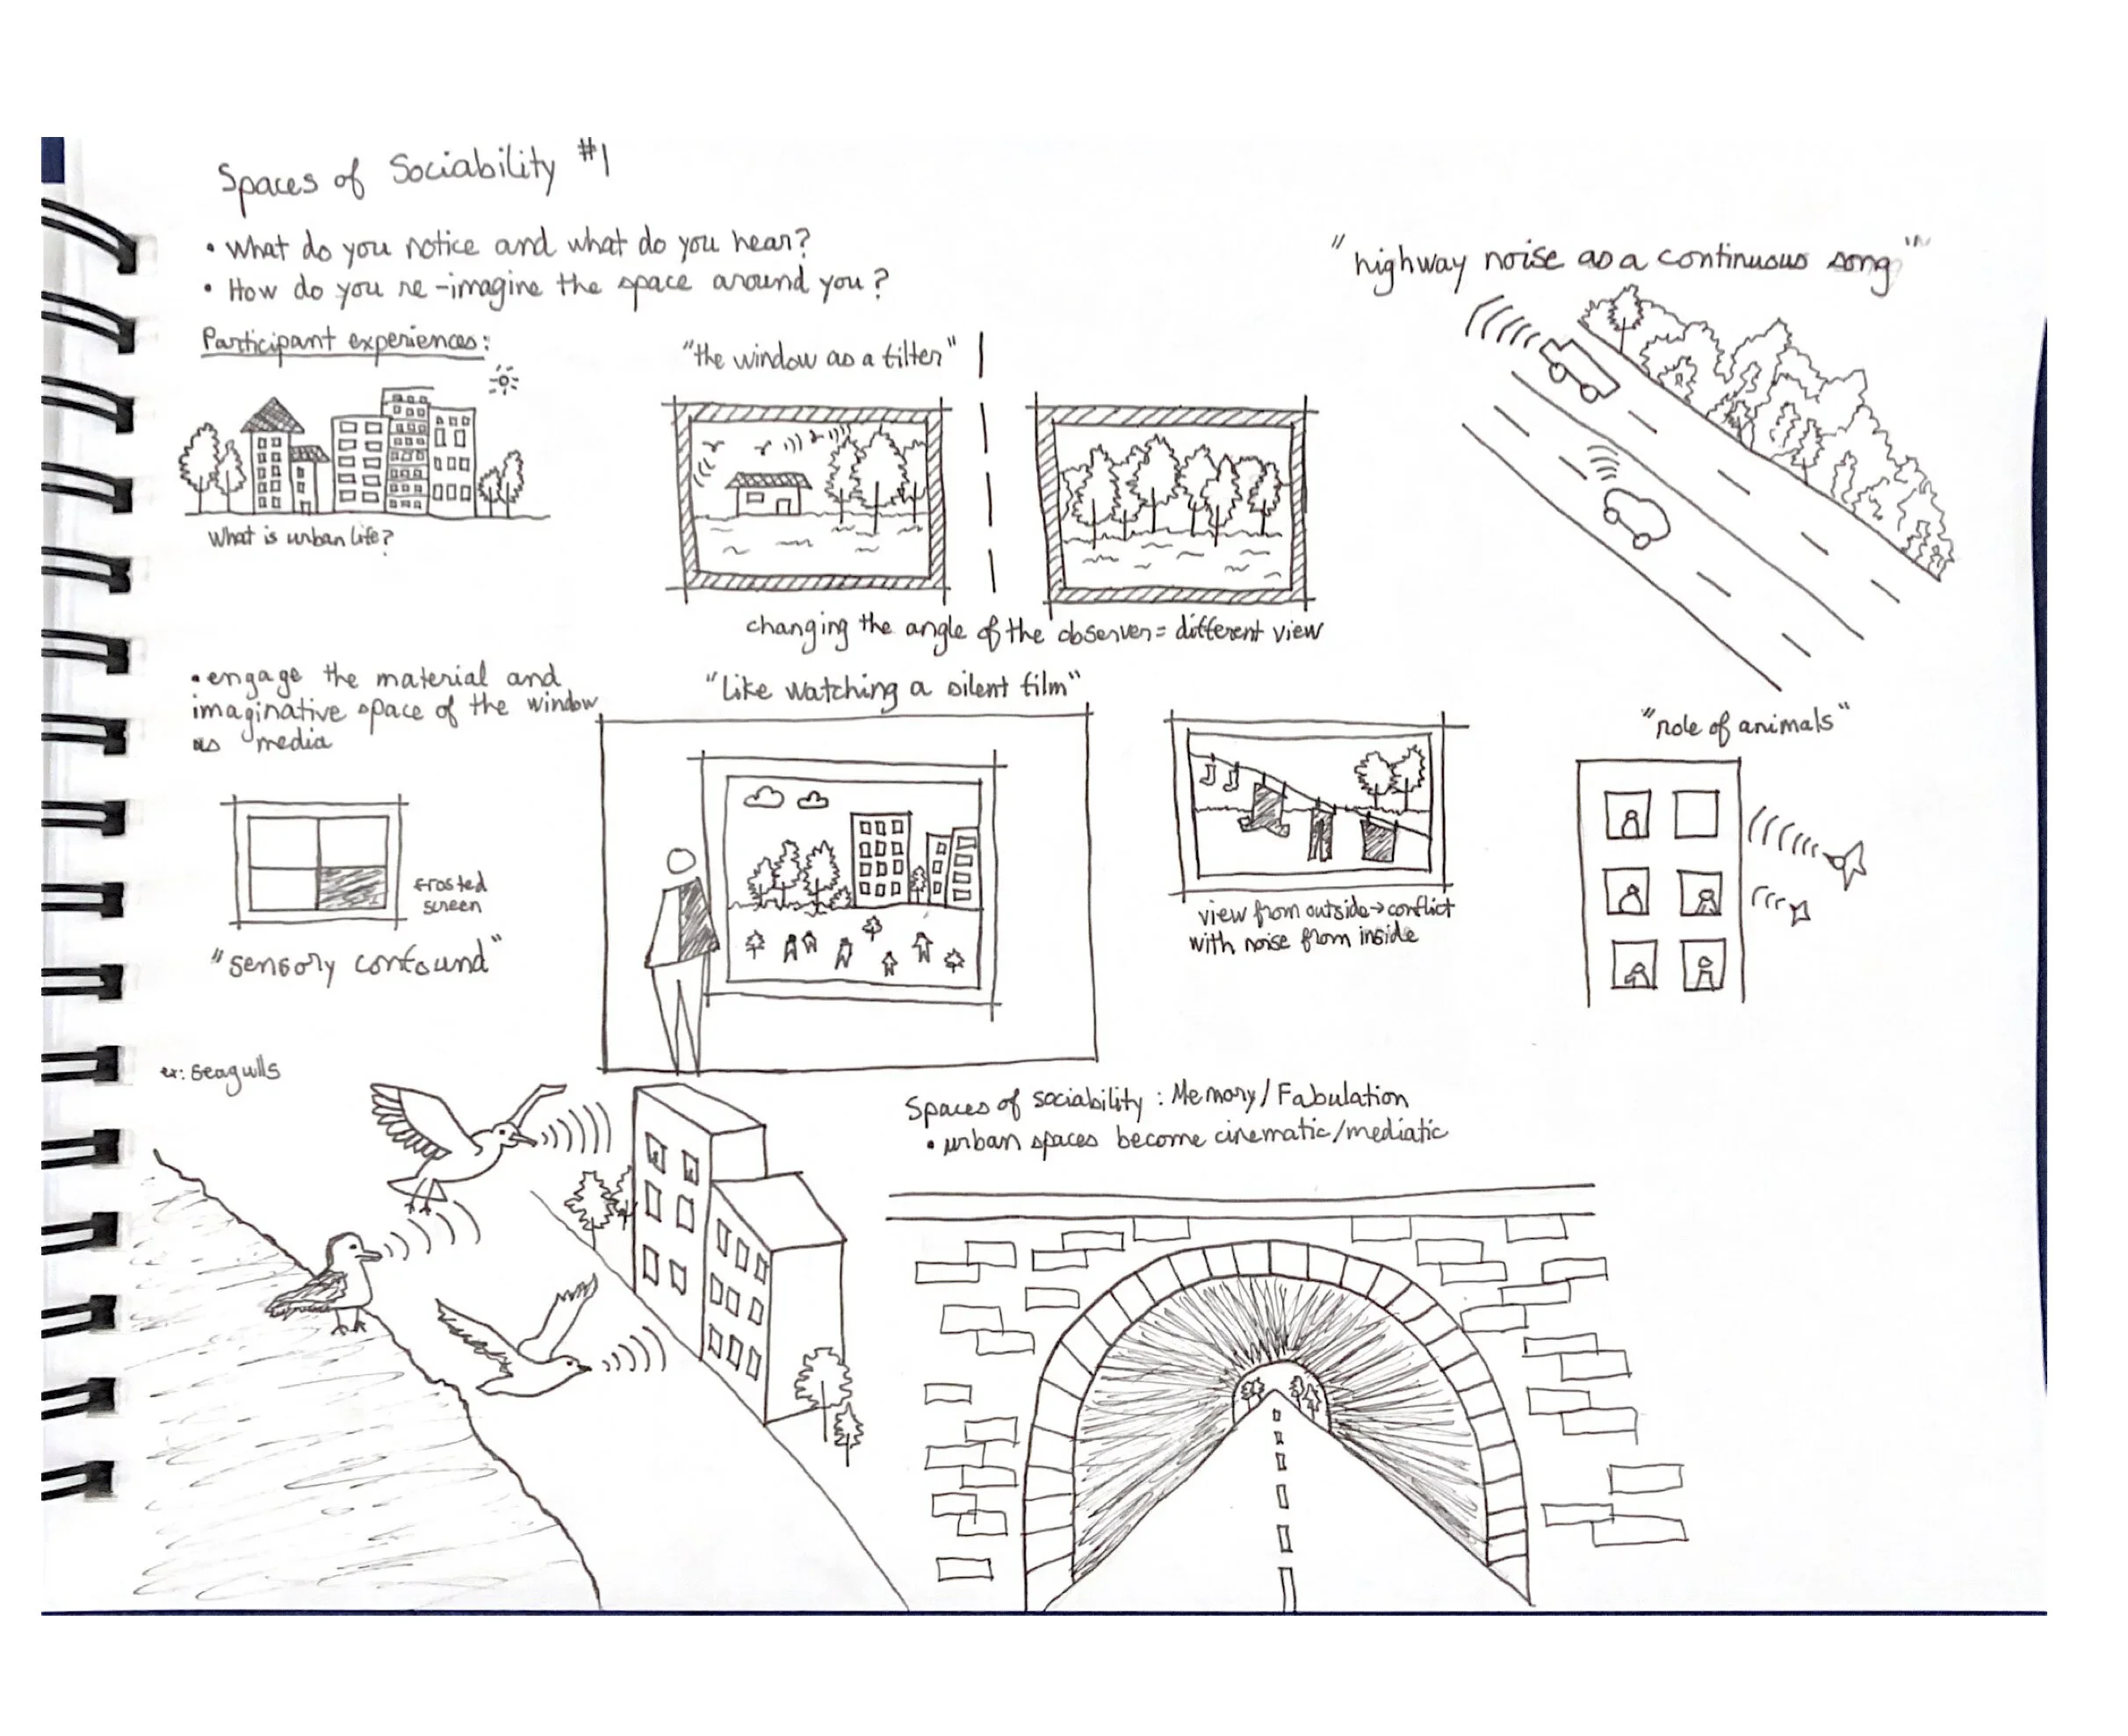 Spaces of Sociability #1
• What do you notice and what do you hear?
• How do you re-imagine the space around you?
Participant experiences:
What is urban life?
"the window as a filter"
changing the angle of the observer = different view
"highway noise as a continuous song"
• engage the material and
imaginative space of the window
as media
frosted
screen
"sensory confound"
"Like watching a silent film"
view from outside → conflict
with noise from inside
"role of animals"
ex: seagulls
Spaces of sociability : Memory / Fabulation
• urban spaces become cinematic/mediatic